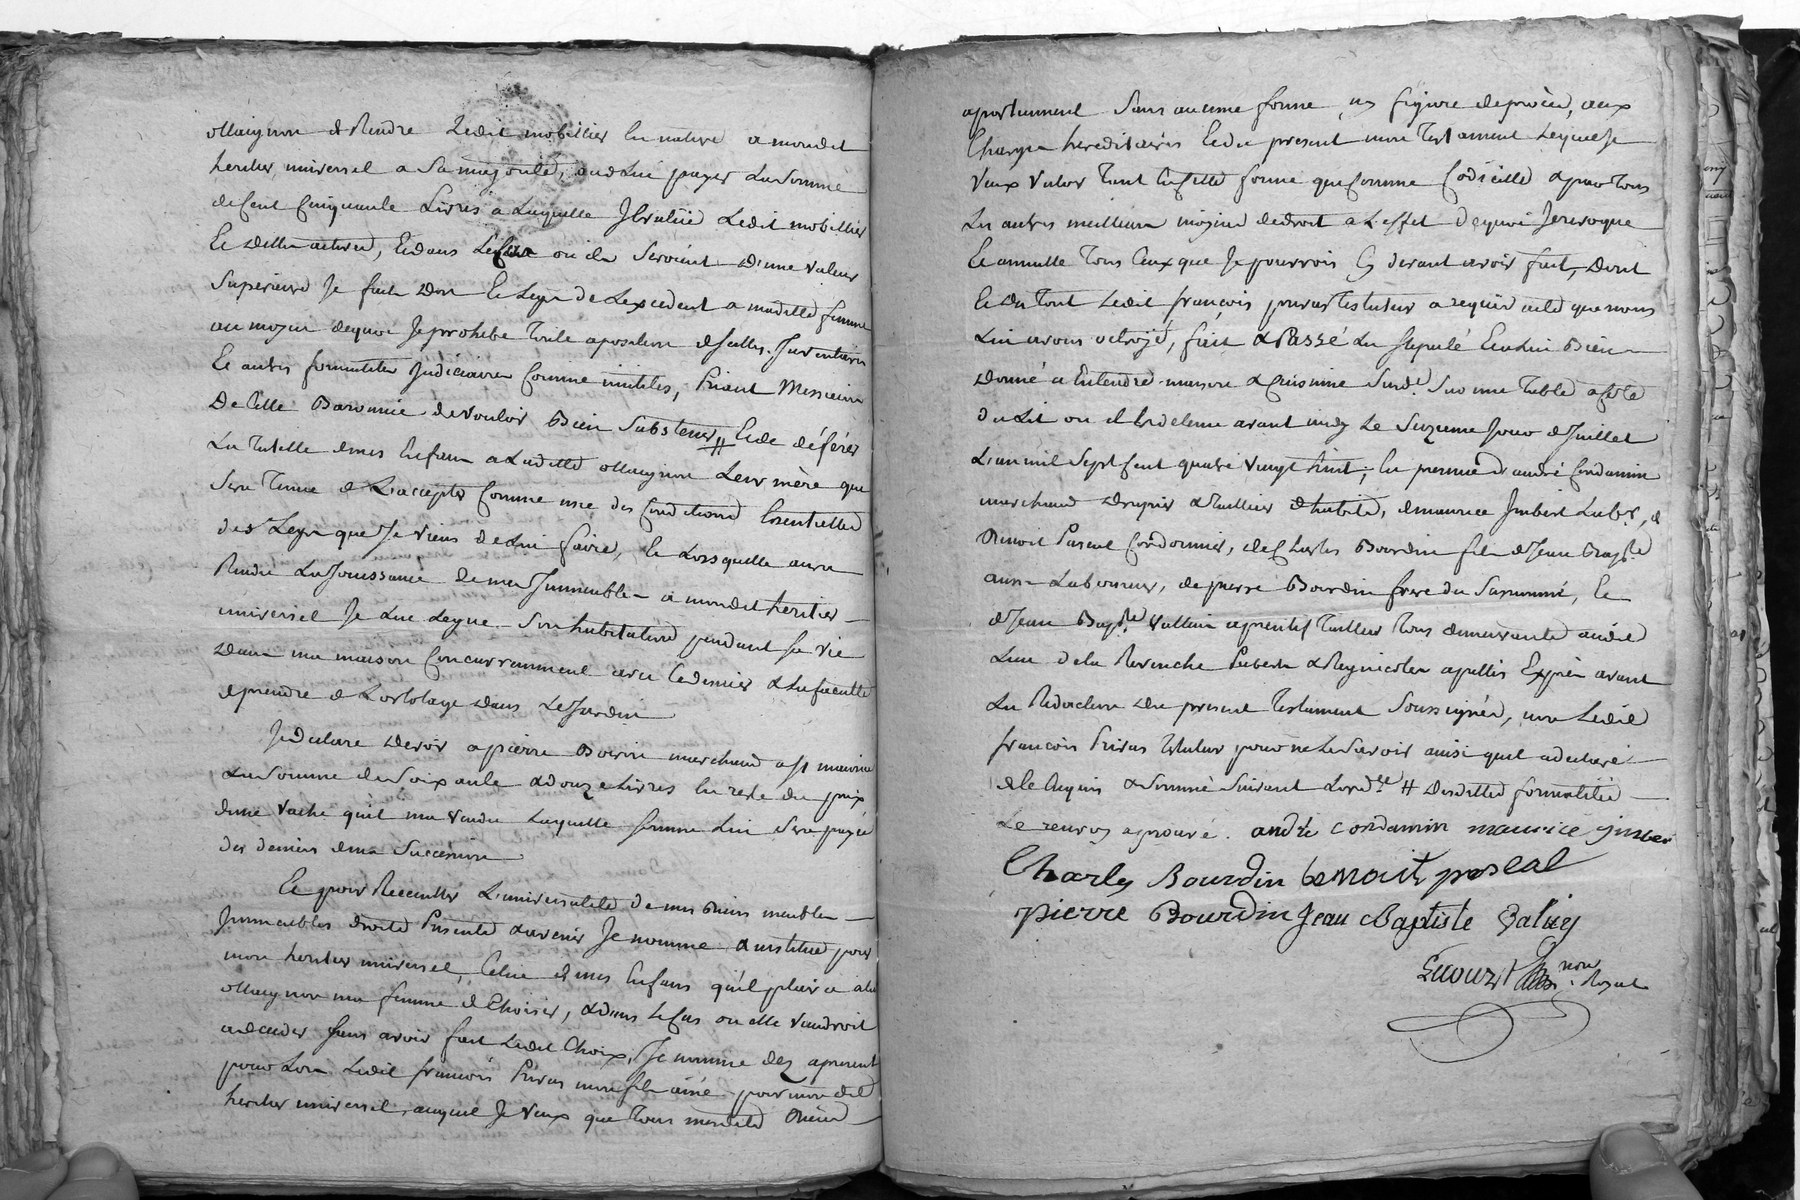 Maignon de Rendre Ledit mobillier En nature a mondit
heritier universel a Sa majorité, ou de Lui payer La Somme
de Cent Cinquante Livres a Laquelle J'Evalüe Ledit mobillier
Et Dettes actives, Et dans Le Cas ou ils Seroient D'une valeur
Superieure Je fais Don Et Legs de L'excedent a madite femme
au moyen dequoi Je prohibe Toute aposition de scellés, Inventaires
Et autres formalités Judiciaires Comme inutiles, Priant Messieurs
De Cette Baronnie de vouloir Bien S'abstenir // Et de déférer
La Tutelle de mes Enfans a Ladite Maignon Leur mère qui
Sera Tenue de L'accepter Comme une des Conditions Essentielles
des Legs que Je viens de Lui faire, Et Lorsqu'elle aura
Rendu La Jouissance de mes Immeubles a mondit heritier
universel Je Lui Legue Son habitation pendant Sa vie
Dans ma maison Concurramment avec Ce dernier & La faculté
de prendre de L'ortolage Dans Le Jardin
Je declare Devoir a pierre Boirin marchand a St maurice
La Somme de Soixante & douze Livres En reste du prix
d'une vache qu'il m'a vendu Laquelle somme Lui Sera payée
des deniers de ma Succession
Et pour Recueillir L'universalité de mes Biens meubles
Immeubles droits Présents & avenir Je nomme & institue pour
mon heritier universel, Celui de mes Enfans qu'il plaira a la
Maignon ma femme de Choisir, & dans Le Cas ou elle viendroit
a deceder sans avoir fait Ledit Choix, Je nomme dez apresent
pour Lors Ledit françois Privas mon fils ainé pour mondit
heritier universel, auquel Je veux que Tous mesdits Biens
apartiennent Sans aucune forme ny figure de procès, aux
Charges hereditaires Et du present mon Testament Lequel Je
veux valoir Tant En Cette forme que Comme Codicille & par Tous
Les autres meilleurs moyens de droit a L'effet dequoi Je revoque
Et annulle Tous Ceux que Je pourrois Cy devant avoir fait, Dont
Et Du Tout Ledit françois privas Testateur a requis acte que nous
Lui avons octroyé, fait & Passé Lu Repeté Et a Lui Bien
Donné a Entendre maison & Cuisine Susd. Sur une Table a Coté
du Lit ou il Est detenu avant midy Le Sixieme Jour de Juillet
L'an mil Sept Cent quatre vingt huit; En presence d'andré Condamin
marchand Drapier & Tallier, de maurice Jmbert Labr, de
Benoit Pascal Cordonnier, de Charles Bourdin fils de Jean Bapte
aussi Laboureur, de pierre Bourdin frere du Susnommé, Et
de Jean Bapte Vallain aprentif Tailleur Tous demeurants audit
Lieu de la Revenche Puberes & Regnicoles apellés Exprès avant
La Redaction Du present Testament Soussignés, non Ledit
françois Privas Testateur pour ne Le Savoir ainsi qu'il a declaré
de le Enquis & Sommé Suivant L'ordce // Desdittes formalités
Le renvoy aprouvé. andré condamin maurice jmber
Charles Bourdin benoit pascal
pierre Bourdin Jean Baptiste Valley
non. Royal